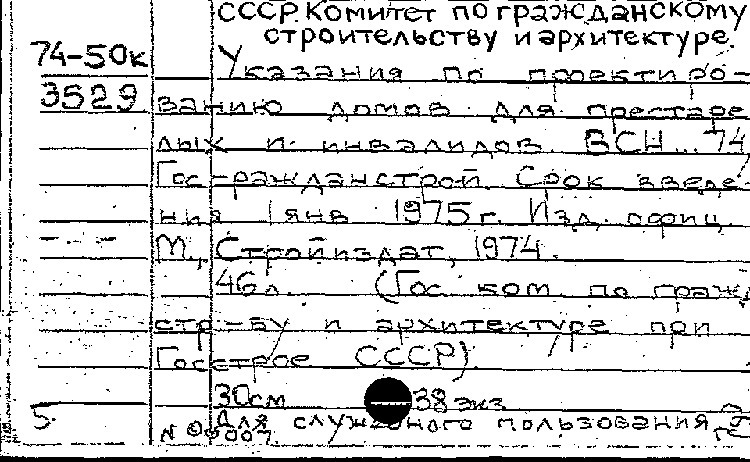 СССР. Комитет по гражданскому
строительству и архитектуре.
74-50к
Указания по проектиро-
3529
ванию домов для престаре
лых и инвалидов. ВСН... 74/
Госгражданстрой. Срок введе
ния 1 янв 1975 г. Изд. офиц
М., Стройиздат, 1974.
46 л. (Гос ком. по гражд
стр-ву и архитектуре при
Госстрое СССР).
30см 38 экз
5.
Для служебного пользования
N